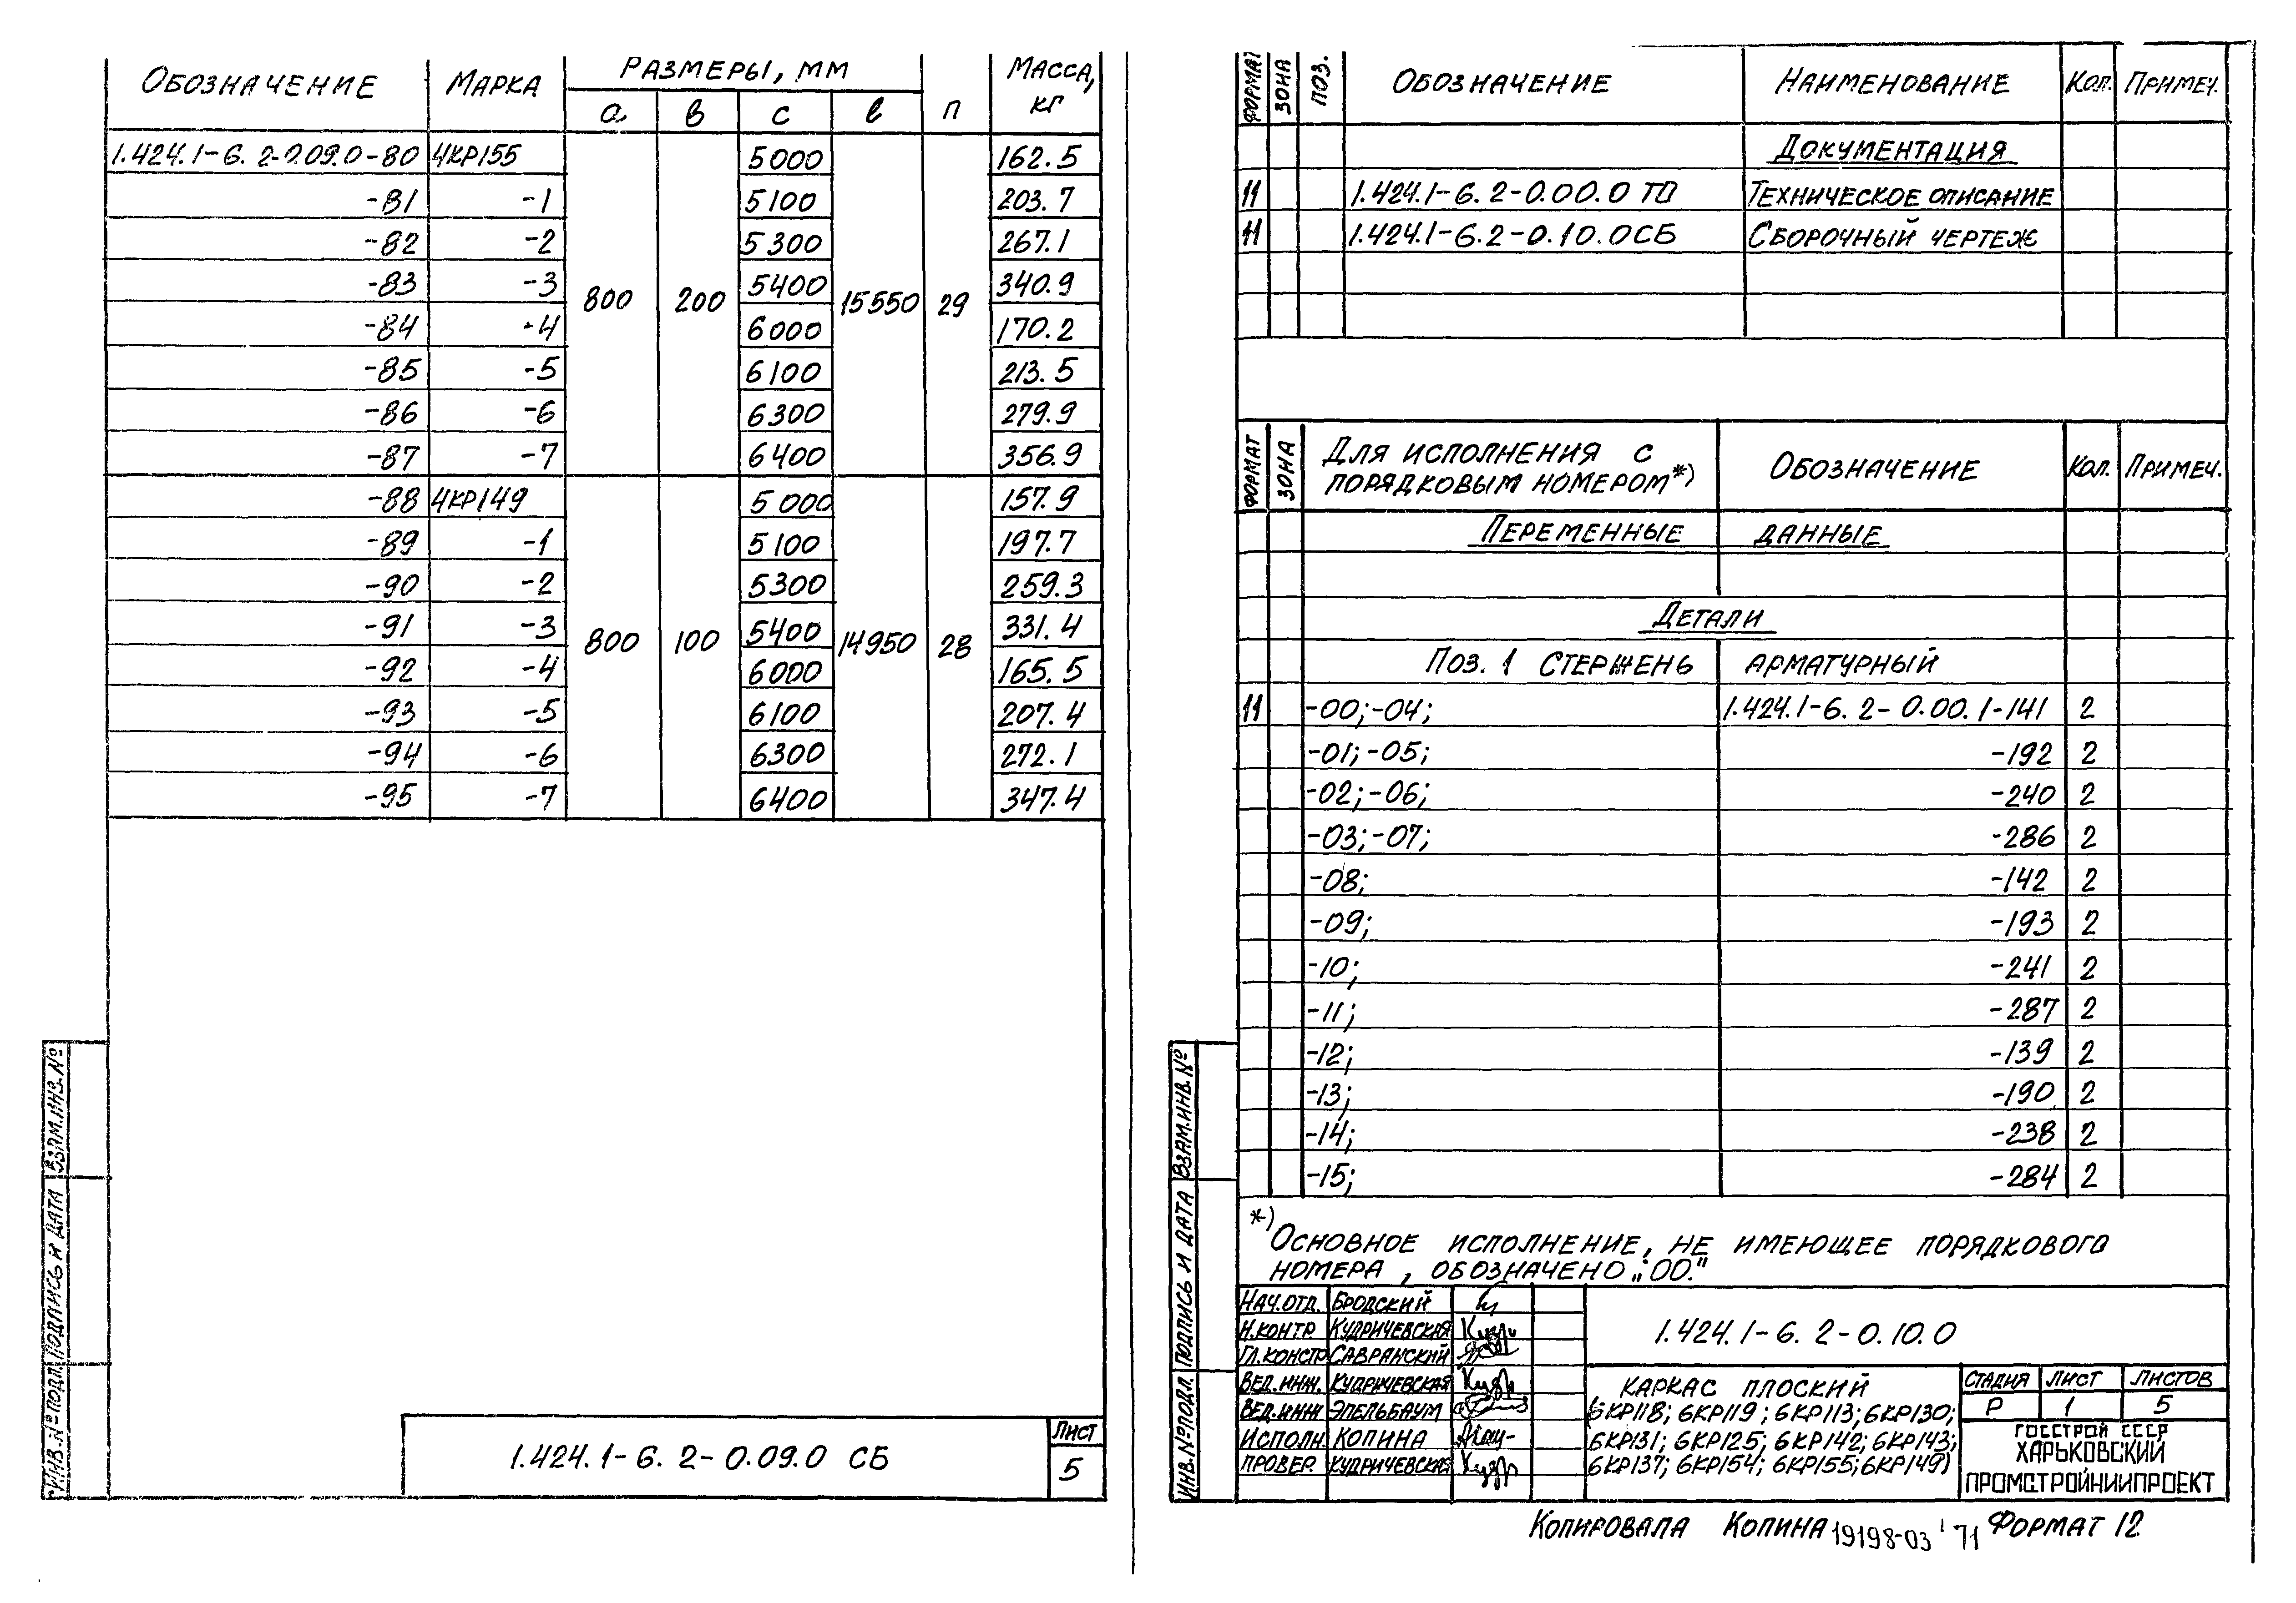 ОБОЗНАЧЕНИЕ МАРКА РАЗМЕРЫ, ММ п МАССА, КГ
а в с ℓ
1.424.1-6.2-0.09.0-80 4КР155 800 200 5000 15550 29 162.5
-81 -1 5100 203.7
-82 -2 5300 267.1
-83 -3 5400 340.9
-84 -4 6000 170.2
-85 -5 6100 213.5
-86 -6 6300 279.9
-87 -7 6400 356.9
-88 4КР149 800 100 5000 14950 28 157.9
-89 -1 5100 197.7
-90 -2 5300 259.3
-91 -3 5400 331.4
-92 -4 6000 165.5
-93 -5 6100 207.4
-94 -6 6300 272.1
-95 -7 6400 347.4
ВЗАМ.ИНВ.№
ПОДПИСЬ И ДАТА
ИНВ.№ПОДЛ.
1.424.1-6.2-0.09.0 СБ
ЛИСТ
5
ФОРМАТ ЗОНА ПОЗ. ОБОЗНАЧЕНИЕ НАИМЕНОВАНИЕ КОЛ. ПРИМЕЧ.
ДОКУМЕНТАЦИЯ
11 1.424.1-6.2-0.00.0 ТО ТЕХНИЧЕСКОЕ ОПИСАНИЕ
11 1.424.1-6.2-0.10.0СБ СБОРОЧНЫЙ ЧЕРТЕЖ
ФОРМАТ ЗОНА ДЛЯ ИСПОЛНЕНИЯ С ПОРЯДКОВЫМ НОМЕРОМ*) ОБОЗНАЧЕНИЕ КОЛ. ПРИМЕЧ.
ПЕРЕМЕННЫЕ ДАННЫЕ
ДЕТАЛИ
ПОЗ. 1 СТЕРЖЕНЬ АРМАТУРНЫЙ
11 -00;-04; 1.424.1-6.2-0.00.1-141 2
-01;-05; -192 2
-02;-06; -240 2
-03;-07; -286 2
-08; -142 2
-09; -193 2
-10; -241 2
-11; -287 2
-12; -139 2
-13; -190 2
-14; -238 2
-15; -284 2
*) ОСНОВНОЕ ИСПОЛНЕНИЕ, НЕ ИМЕЮЩЕЕ ПОРЯДКОВОГО
НОМЕРА, ОБОЗНАЧЕНО „00."
ВЗАМ.ИНВ.№
ПОДПИСЬ И ДАТА
ИНВ.№ПОДЛ.
НАЧ.ОТД. БРОДСКИЙ
Н.КОНТР КУДРИЧЕВСКАЯ
ГЛ.КОНСТР САВРАНСКИЙ
ВЕД.ИНЖ. КУДРИЧЕВСКАЯ
ВЕД.ИНЖ ЭПЕЛЬБАУМ
ИСПОЛН. КОПИНА
ПРОВЕР. КУДРИЧЕВСКАЯ
1.424.1-6.2-0.10.0
КАРКАС ПЛОСКИЙ
6КР118; 6КР119; 6КР113; 6КР130;
6КР131; 6КР125; 6КР142; 6КР143;
6КР137; 6КР154; 6КР155; 6КР149)
СТАДИЯ ЛИСТ ЛИСТОВ
Р 1 5
ГОССТРОЙ СССР
ХАРЬКОВСКИЙ
ПРОМСТРОЙНИИПРОЕКТ
КОПИРОВАЛА КОПИНА 19198-03 71 ФОРМАТ 12